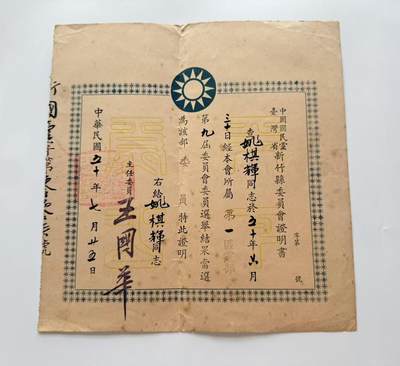 中國國民黨臺灣省新竹縣委員會證明書
字第　　號
查姚棋輝同志於五十年六月
三十日經本會所屬第一區黨部
第九屆委員會委員選舉結果當選
為該部委員特此證明
右給姚棋輝同志
主任委員王國華
中華民國五十年七月廿五日